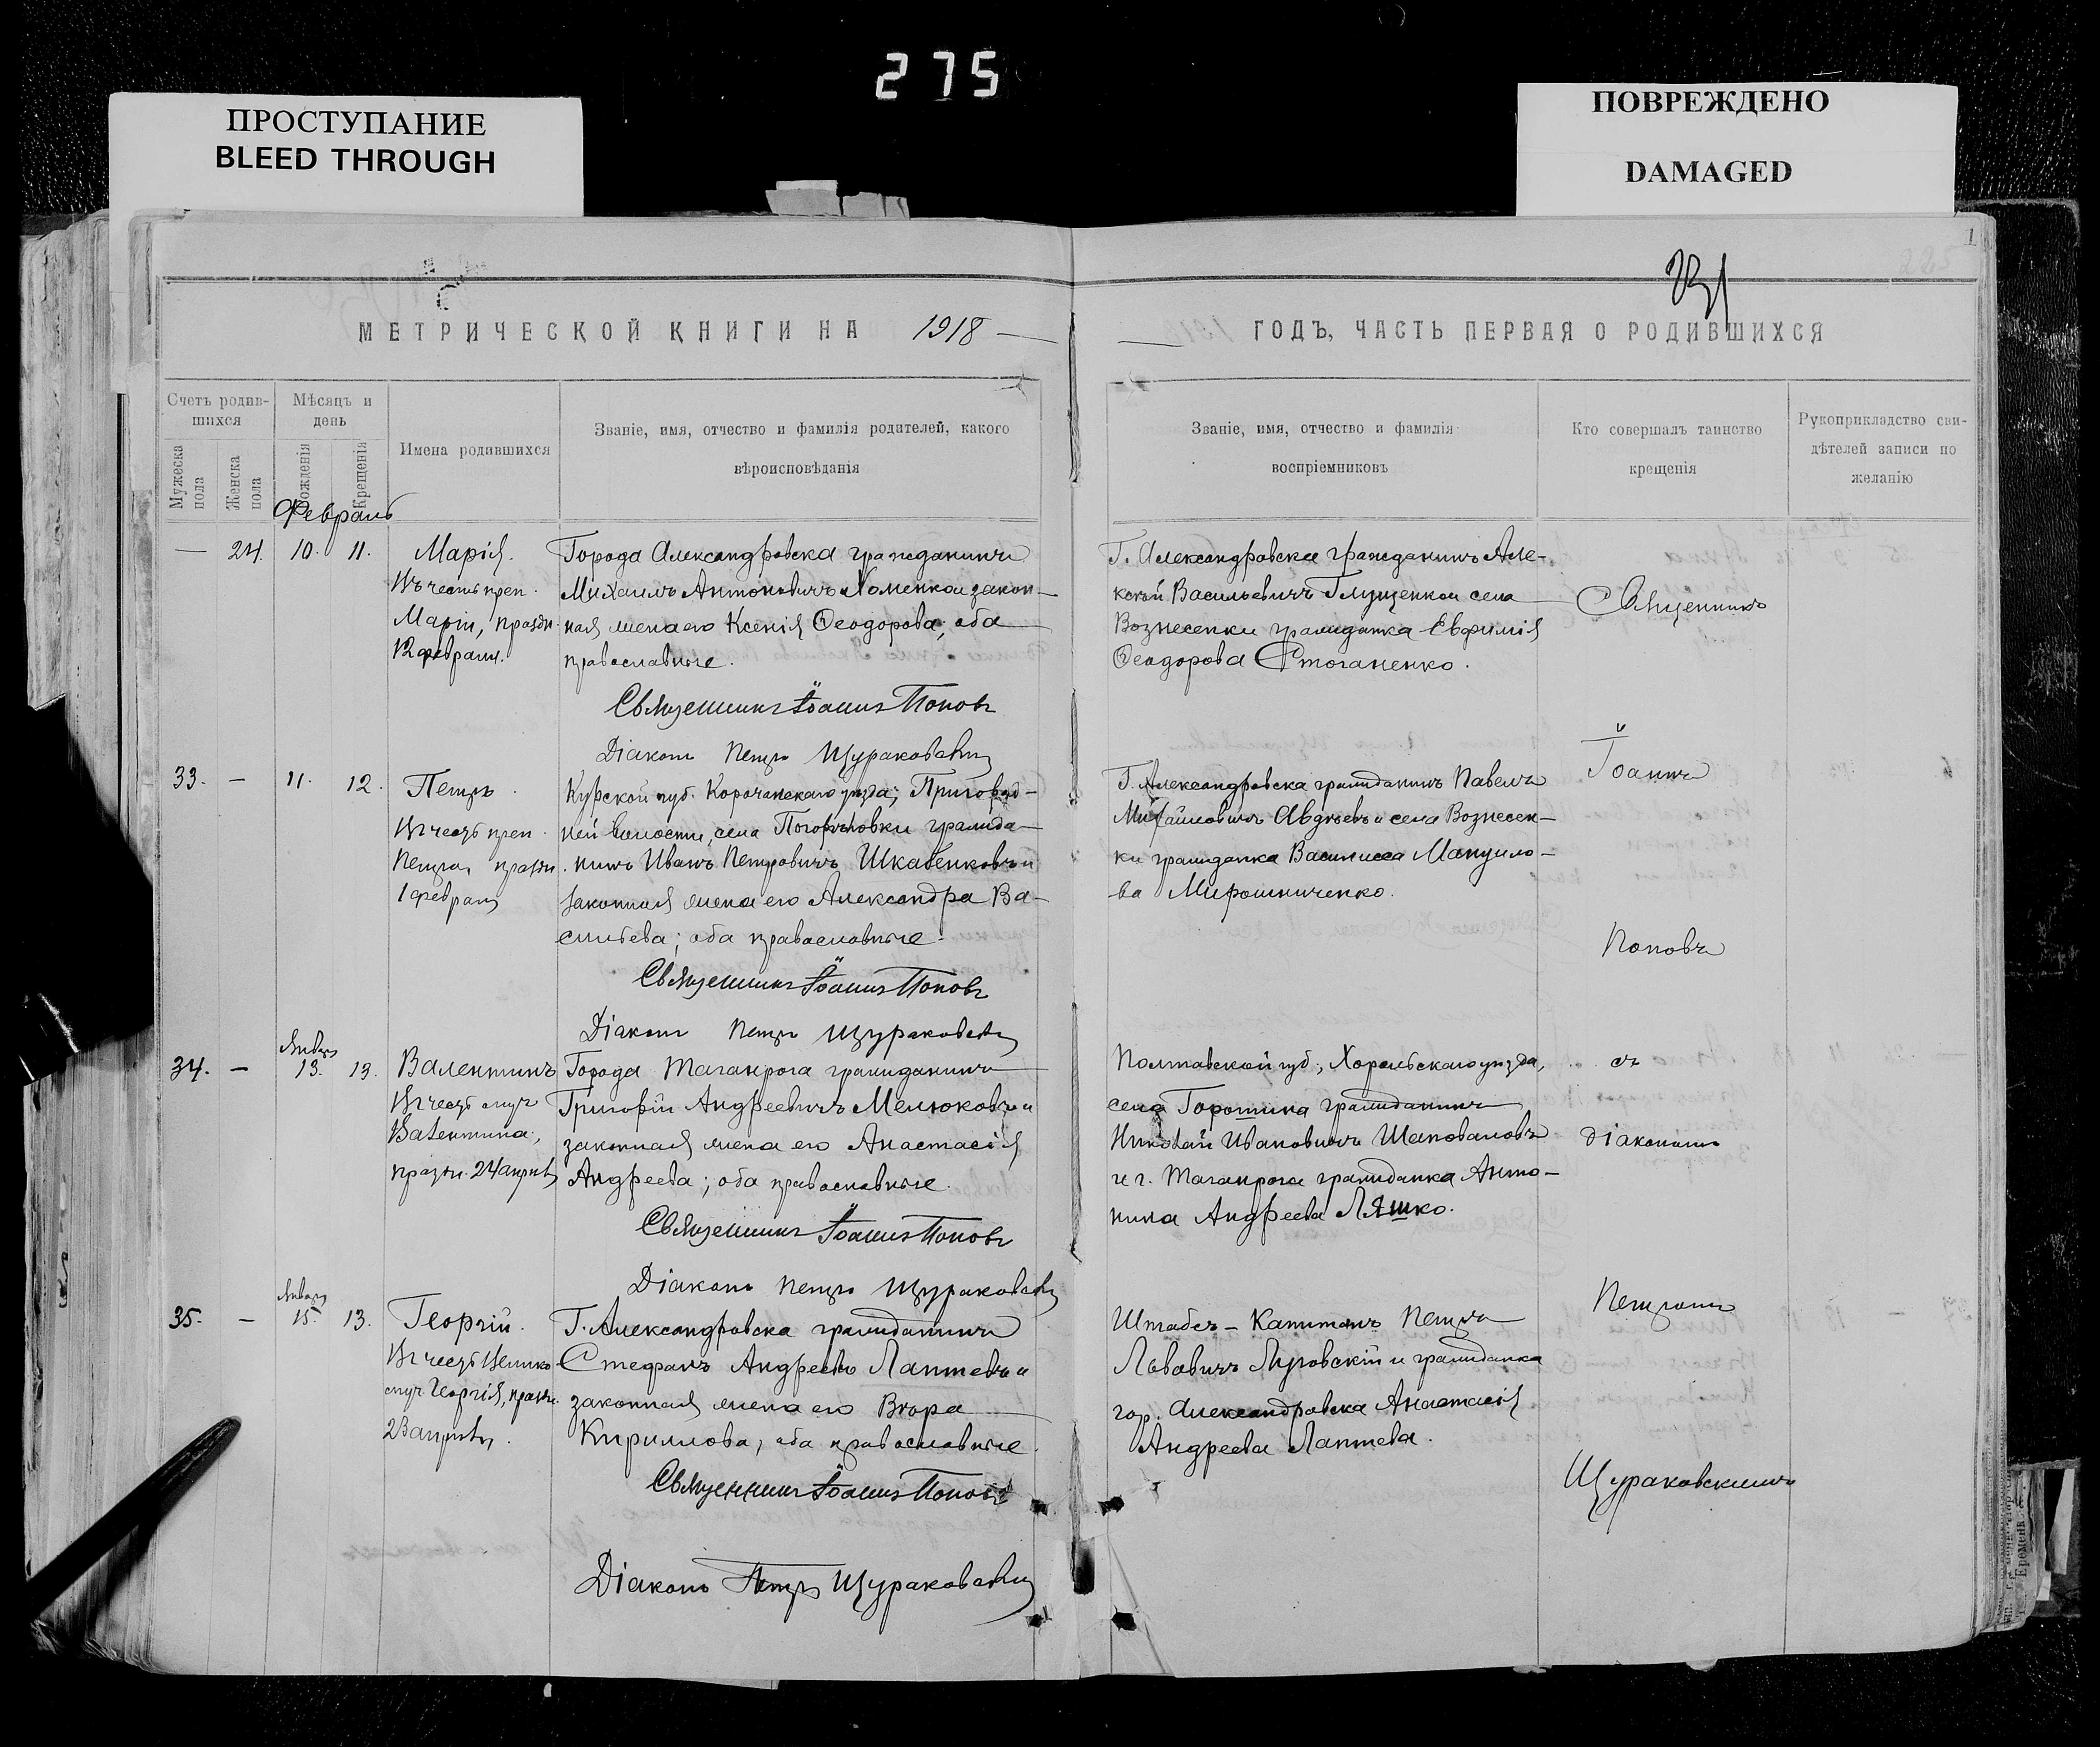 275
ПРОСТУПАНИЕ
BLEED THROUGH
ПОВРЕЖДЕНО
DAMAGED
МЕТРИЧЕСКОЙ КНИГИ НА 1918
ГОДЪ, ЧАСТЬ ПЕРВАЯ О РОДИВШИХСЯ
Счетъ родив-
шихся
Мужеска пола
Женска пола
Мѣсяцъ и
день
Рожденія
Крещенія
Имена родившихся
Званіе, имя, отчество и фамилія родителей, какого
вѣроисповѣданія
Званіе, имя, отчество и фамилія
воспріемниковъ
Кто совершалъ таинство
крещенія
Рукоприкладство сви-
дѣтелей записи по
желанію
Февраль
— 24. 10. 11.
Марія.
Въ честь преп.
Маріи, праздн.
12 февраля.
Города Александровска гражданинъ
Михаилъ Антоновичъ Хоменко и закон-
ная жена его Ксенія Ѳеодорова; оба
православные.
Священникъ Іоаннъ Поповъ
Діаконъ Петръ Щураковскій
Г. Александровска гражданинъ Але-
ксѣй Васильевичъ Глущенко и села
Вознесенки гражданка Евфимія
Ѳеодорова Стоганенко.
33. — 11. 12.
Петръ.
Въ честь преп.
Петра, праздн.
1 февраля
Курской губ. Корочанскаго уѣзда, Пригород-
ней волости, села Погорѣловки гражда-
нинъ Иванъ Петровичъ Шкабенковъ и
законная жена его Александра Ва-
сильева; оба православные.
Священникъ Іоаннъ Поповъ
Діаконъ Петръ Щураковскій
Г. Александровска гражданинъ Павелъ
Михайловичъ Авдѣевъ и села Вознесен-
ки гражданка Василисса Мануило-
ва Мирошниченко.
Январь
34. — 13. 13.
Валентинъ
Въ честь муч.
Валентина,
праздн. 24 апрѣля
Города Таганрога гражданинъ
Григорій Андреевичъ Мелюковъ и
законная жена его Анастасія
Андреева; оба православные.
Священникъ Іоаннъ Поповъ
Діаконъ Петръ Щураковскій
Полтавской губ., Хорольскаго уѣзда,
села Горошина гражданинъ
Николай Ивановичъ Шаповаловъ
и г. Таганрога гражданка Анто-
нина Андреева Ляшко.
Январь
35. — 15. 13.
Георгій.
Въ честь Велико
муч. Георгія, праздн.
23 апрѣля.
Г. Александровска гражданинъ
Стефанъ Андреевъ Лаптевъ и
законная жена его Вѣра
Кириллова, оба православные.
Священникъ Іоаннъ Поповъ
Діаконъ Петръ Щураковскій
Штабсъ-Капитанъ Петръ
Львовичъ Луговскій и гражданка
гор. Александровска Анастасія
Андреева Лаптева.
Священникъ
Іоаннъ
Поповъ
съ
діакономъ
Петромъ
Щураковскимъ